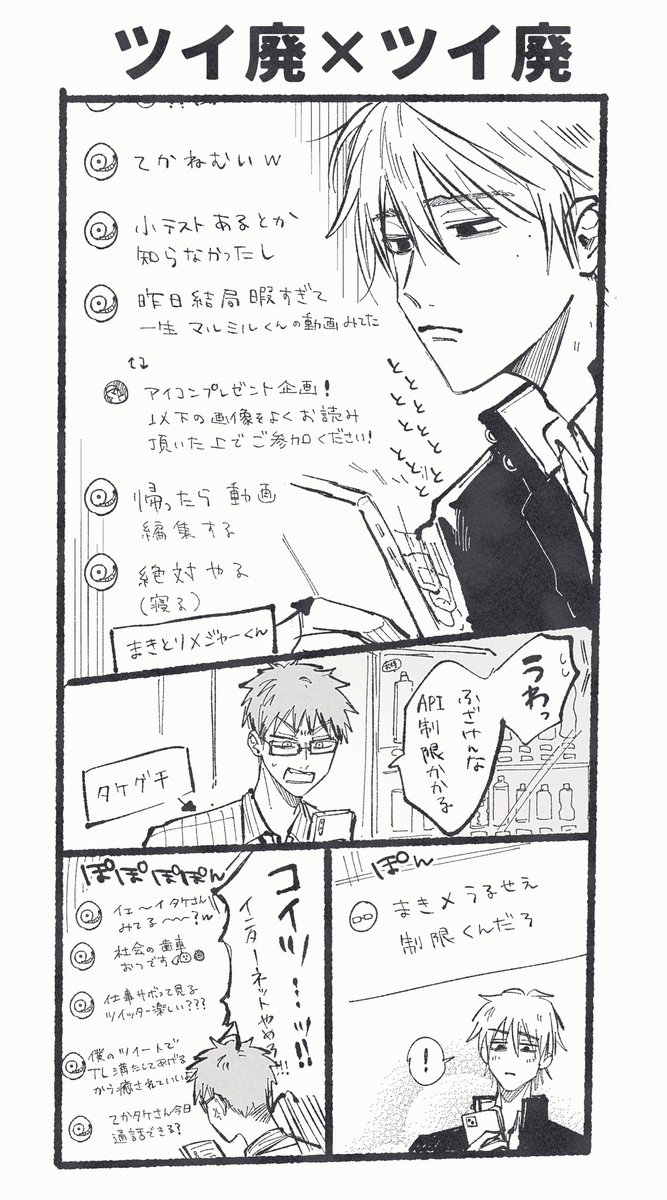 ツイ廃×ツイ廃
てかねむいw
小テストあるとか
知らなかったし
昨日結局暇すぎて
一生マルミルくんの動画みてた
アイコンプレゼント企画!
以下の画像をよくお読み
頂いた上でご参加ください!
帰ったら動画
編集する
絶対やる
(寝る)
とととと
ととととと
まきとりメジャーくん
うわっ
ふざけんな
API
制限かかる
タケグチ
ぽん
まきメうるせえ
制限くんだろ
!
ぽぽぽぽん
イェ〜イタケさん
みてる〜〜?w
社会の歯車
おつです
仕事サボって見る
ツイッター楽しい???
僕のツイートで
TL満たしてあげる
から癒されていいよ
てかタケさん今日
通話できる?
コイツ…ッ!!
インターネットやめろ!!